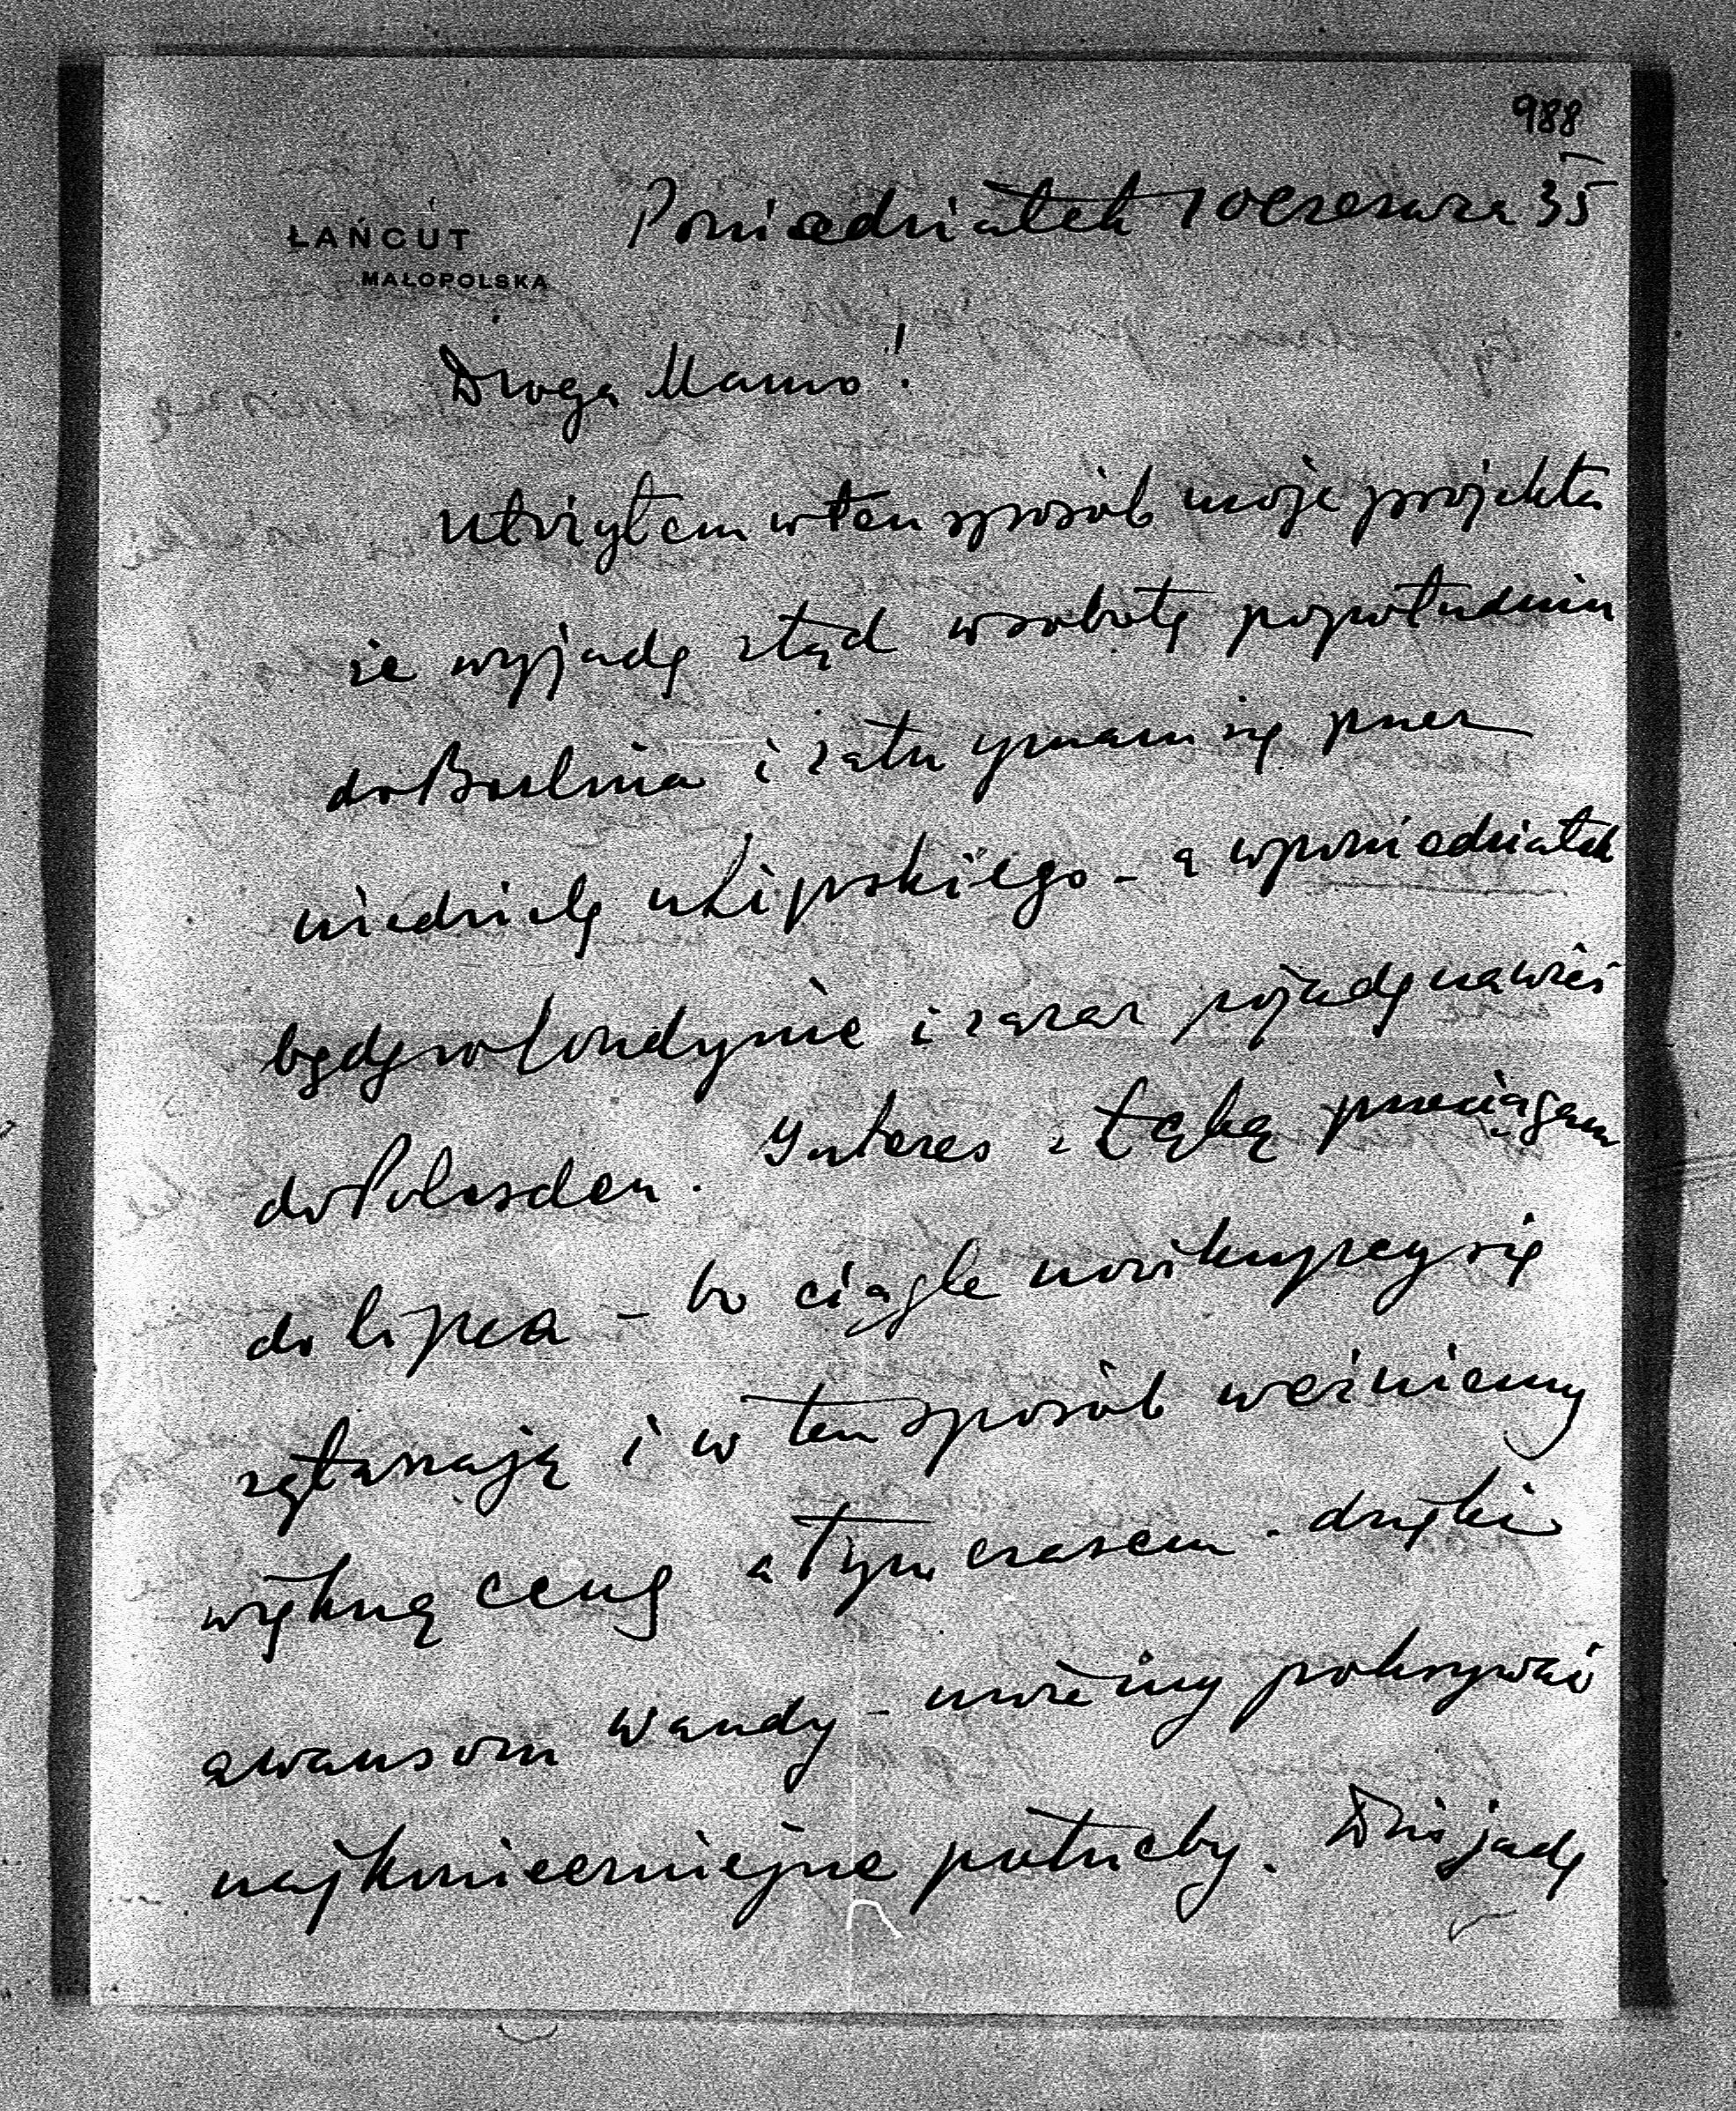 988
ŁAŃCUT
MAŁOPOLSKA
Poniedziałek 10 czerwca 35
Droga Mamo!
utożyłem w ten sposób moje projekta
że wyjadę stąd w sobotę popołudniu
do Berlina i zatrzymam się przez
niedzielę u Lipskiego - a w poniedziałek
będę w Londynie i zaraz pojadę na wieś
do Polesden. Interes z łąką przeciągam
do lipca - bo ciągle nowi kupcy się
zgłaszają i w ten sposób weźmiemy
większą cenę a tym czasem - dzięki
awansom Wandy - możemy pokrywać
najkonieczniejsze potrzeby. Dziś jadę